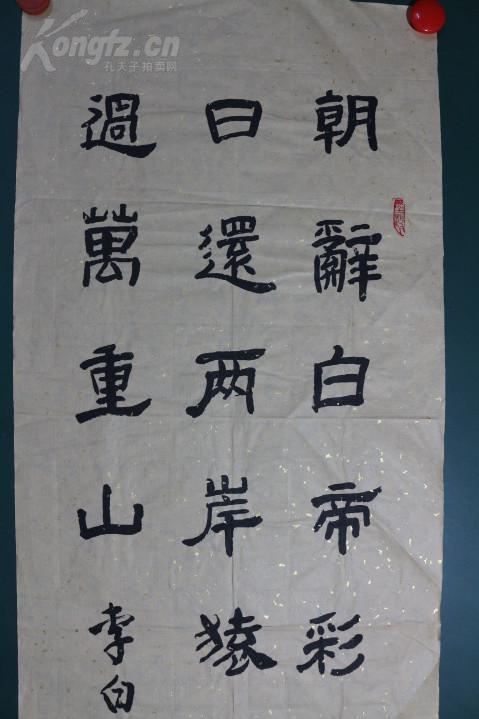 朝辭白帝彩
日還两岸猿
過萬重山
李白
Kongfz.cn
孔夫子拍卖网